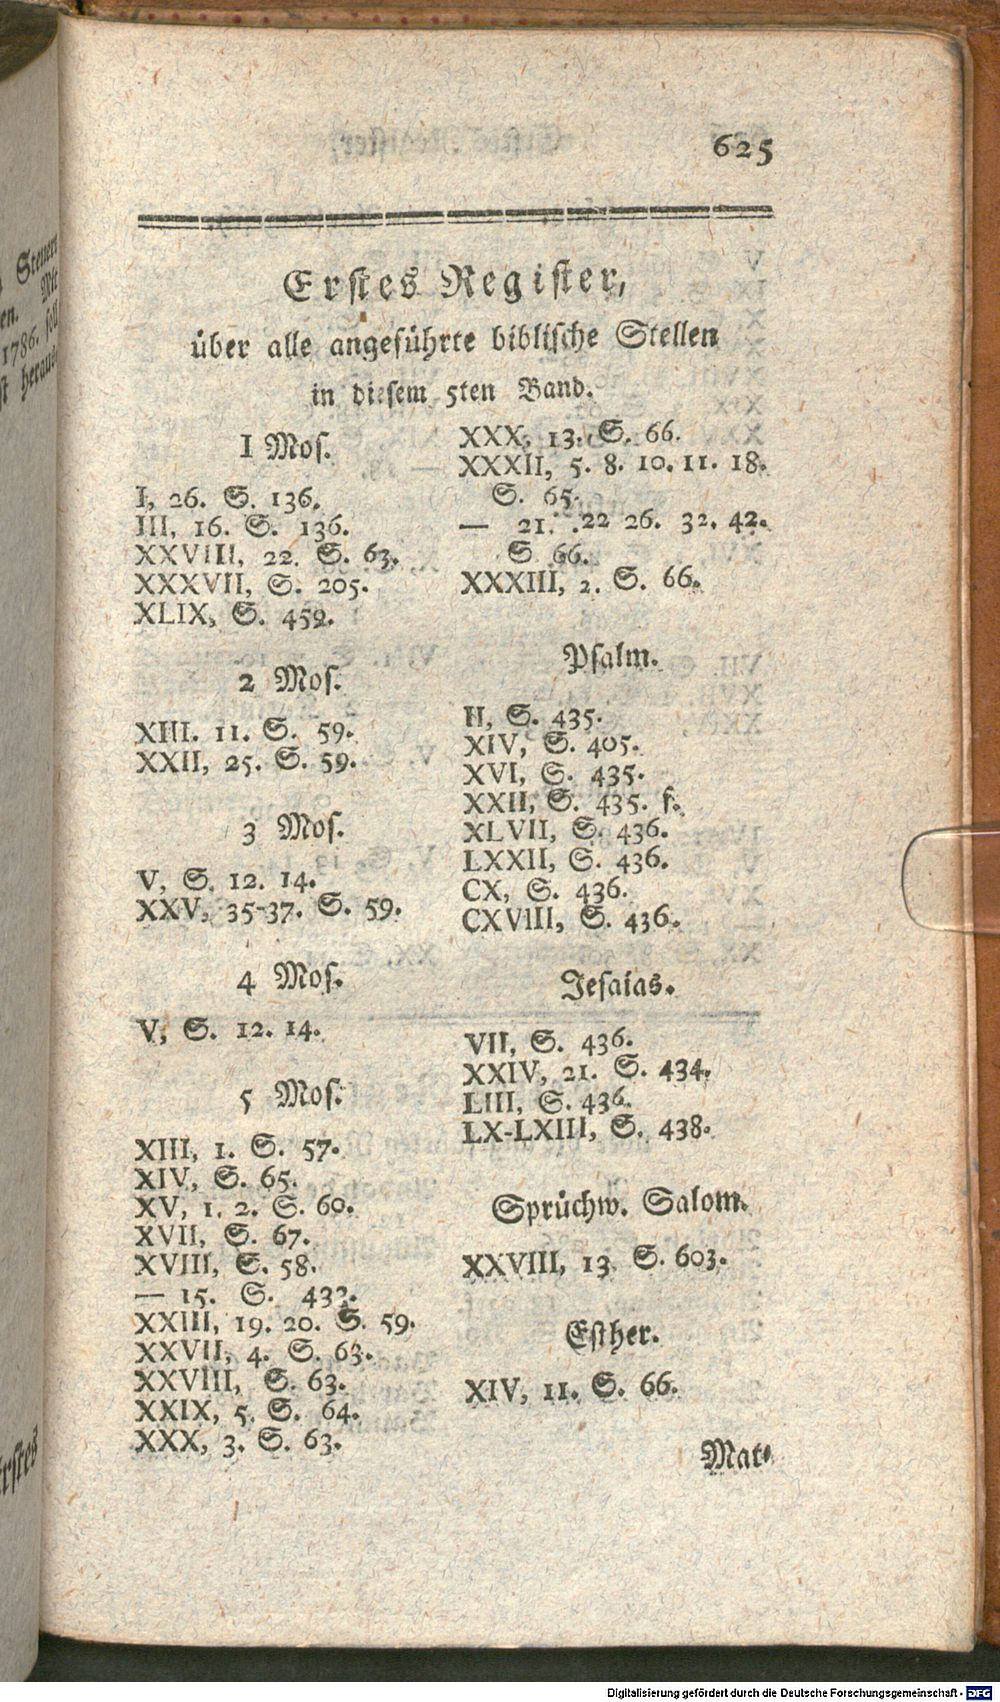 625
Erstes Register,
über alle angeführte biblische Stellen
in diesem 5ten Band.
1 Mos.
I, 26. S. 136.
III, 16. S. 136.
XXVIII, 22. S. 63.
XXXVII, S. 205.
XLIX, S. 452.
2 Mos.
XIII. 11. S. 59.
XXII, 25. S. 59.
3 Mos.
V, S. 12. 14.
XXV, 35-37. S. 59.
4 Mos.
V, S. 12. 14.
5 Mos.
XIII, 1. S. 57.
XIV, S. 65.
XV, 1. 2. S. 60.
XVII, S. 67.
XVIII, S. 58.
— 15. S. 432.
XXIII, 19. 20. S. 59.
XXVII, 4. S. 63.
XXVIII, S. 63.
XXIX, 5. S. 64.
XXX, 3. S. 63.
XXX, 13. S. 66.
XXXII, 5. 8. 10. 11. 18.
S. 65.
— 21. 22 26. 32. 42.
S 66.
XXXIII, 2. S. 66.
Psalm.
II, S. 435.
XIV, S. 405.
XVI, S. 435.
XXII, S. 435. f.
XLVII, S. 436.
LXXII, S. 436.
CX, S. 436.
CXVIII, S. 436.
Jesaias.
VII, S. 436.
XXIV, 21. S. 434.
LIII, S. 436.
LX-LXIII, S. 438.
Sprüchw. Salom.
XXVIII, 13 S. 603.
Esther.
XIV, 11. S. 66.
Mat-
Steuern
Mit
en.
1786. soll
st heraus
Erstes
Digitalisierung gefördert durch die Deutsche Forschungsgemeinschaft - DFG